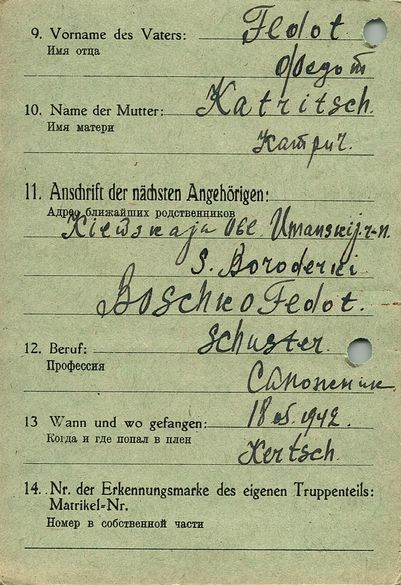 9. Vorname des Vaters: Fedot
Имя отца
Федот
10. Name der Mutter: Katritsch.
Имя матери
Катрич.
11. Anschrift der nächsten Angehörigen:
Адрес ближайших родственников
Kiewskaja Obl. Umanskij r-n.
S. Boroderki
Boschko Fedot.
12. Beruf: Schuster
Профессия
Сапожник
13 Wann und wo gefangen: 18.05.1942.
Когда и где попал в плен
Kertsch.
14. Nr. der Erkennungsmarke des eigenen Truppenteils:
Matrikel-Nr.
Номер в собственной части